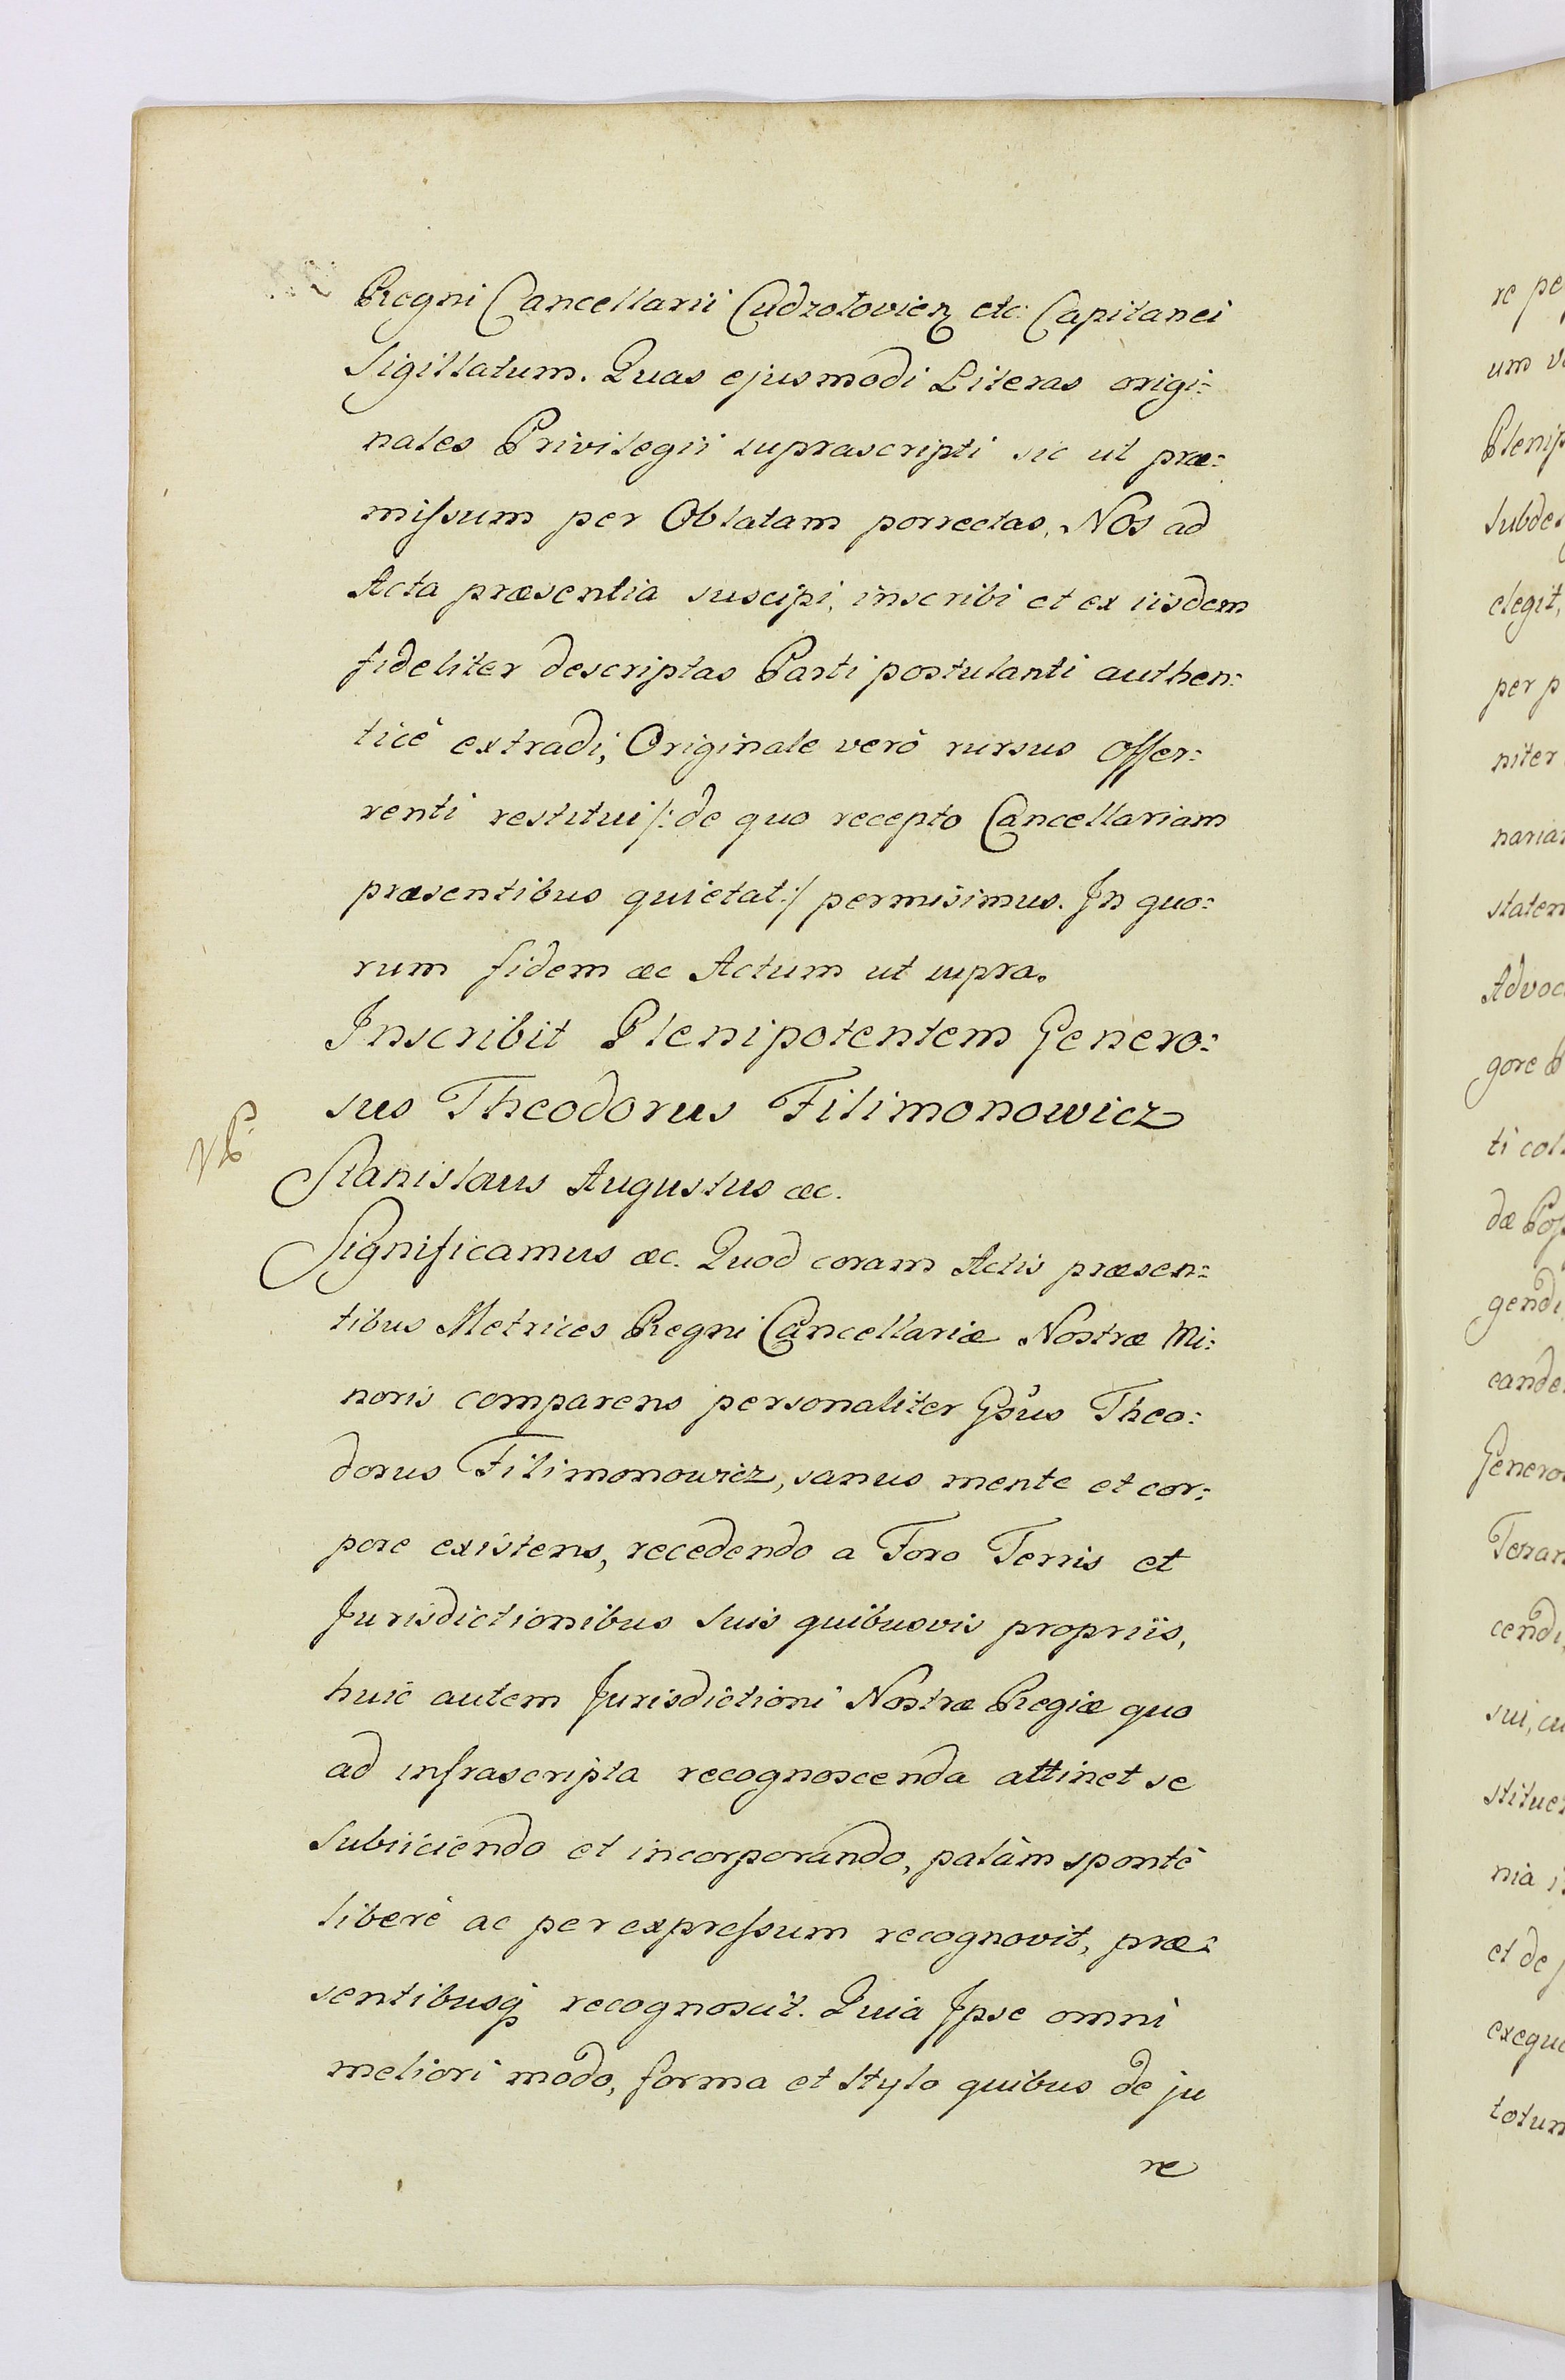 Regni Cancellarii Cudzolovien etc: Capitanei
Sigillatum. Quas ejusmodi Literas origi:
nales Privilegii suprascripti sic ut præ:
missum per Oblatam porrectas, Nos ad
Acta præsentia suscipi, inscribi et ex iisdem
fideliter descriptas Parti postulanti authen:
ticè extradi, Originale verò rursus Offer:
renti restitui /: de quo recepto Cancellariam
præsentibus quietat :/ permisimus. In quo:
rum fidem &c Actum ut supra.
Inscribit Plenipotentem Genero:
sus Theodorus Filimonowicz
Stanislaus Augustus &c.
Significamus &c. Quod coram Actis præsen:
tibus Metrices Regni Cancellariæ Nostræ Mi:
noris comparens personaliter Gsus Theo:
dorus Filimonowicz, sanus mente et cor:
pore existens, recedendo a Foro Terris et
Jurisdictionibus suis quibusvis propriis,
huic autem Jurisdictioni Nostræ Regiæ quo
ad infrascripta recognoscenda attinet se
subiiciendo et incorporando, palàm spontè
liberè ac per expressum recognovit, præ:
sentibusq recognoscit. Quia Ipse omni
meliori modo, forma et stylo quibus de ju
re
re pe
um v
Plenip
subde
elegit,
per p
niter
naria
staten
Advoc
gore
ti col
dæ Po
gendi
cande
Genero
Terran
cendi
sui, cu
stitue
nia i
et de
exequ
totum